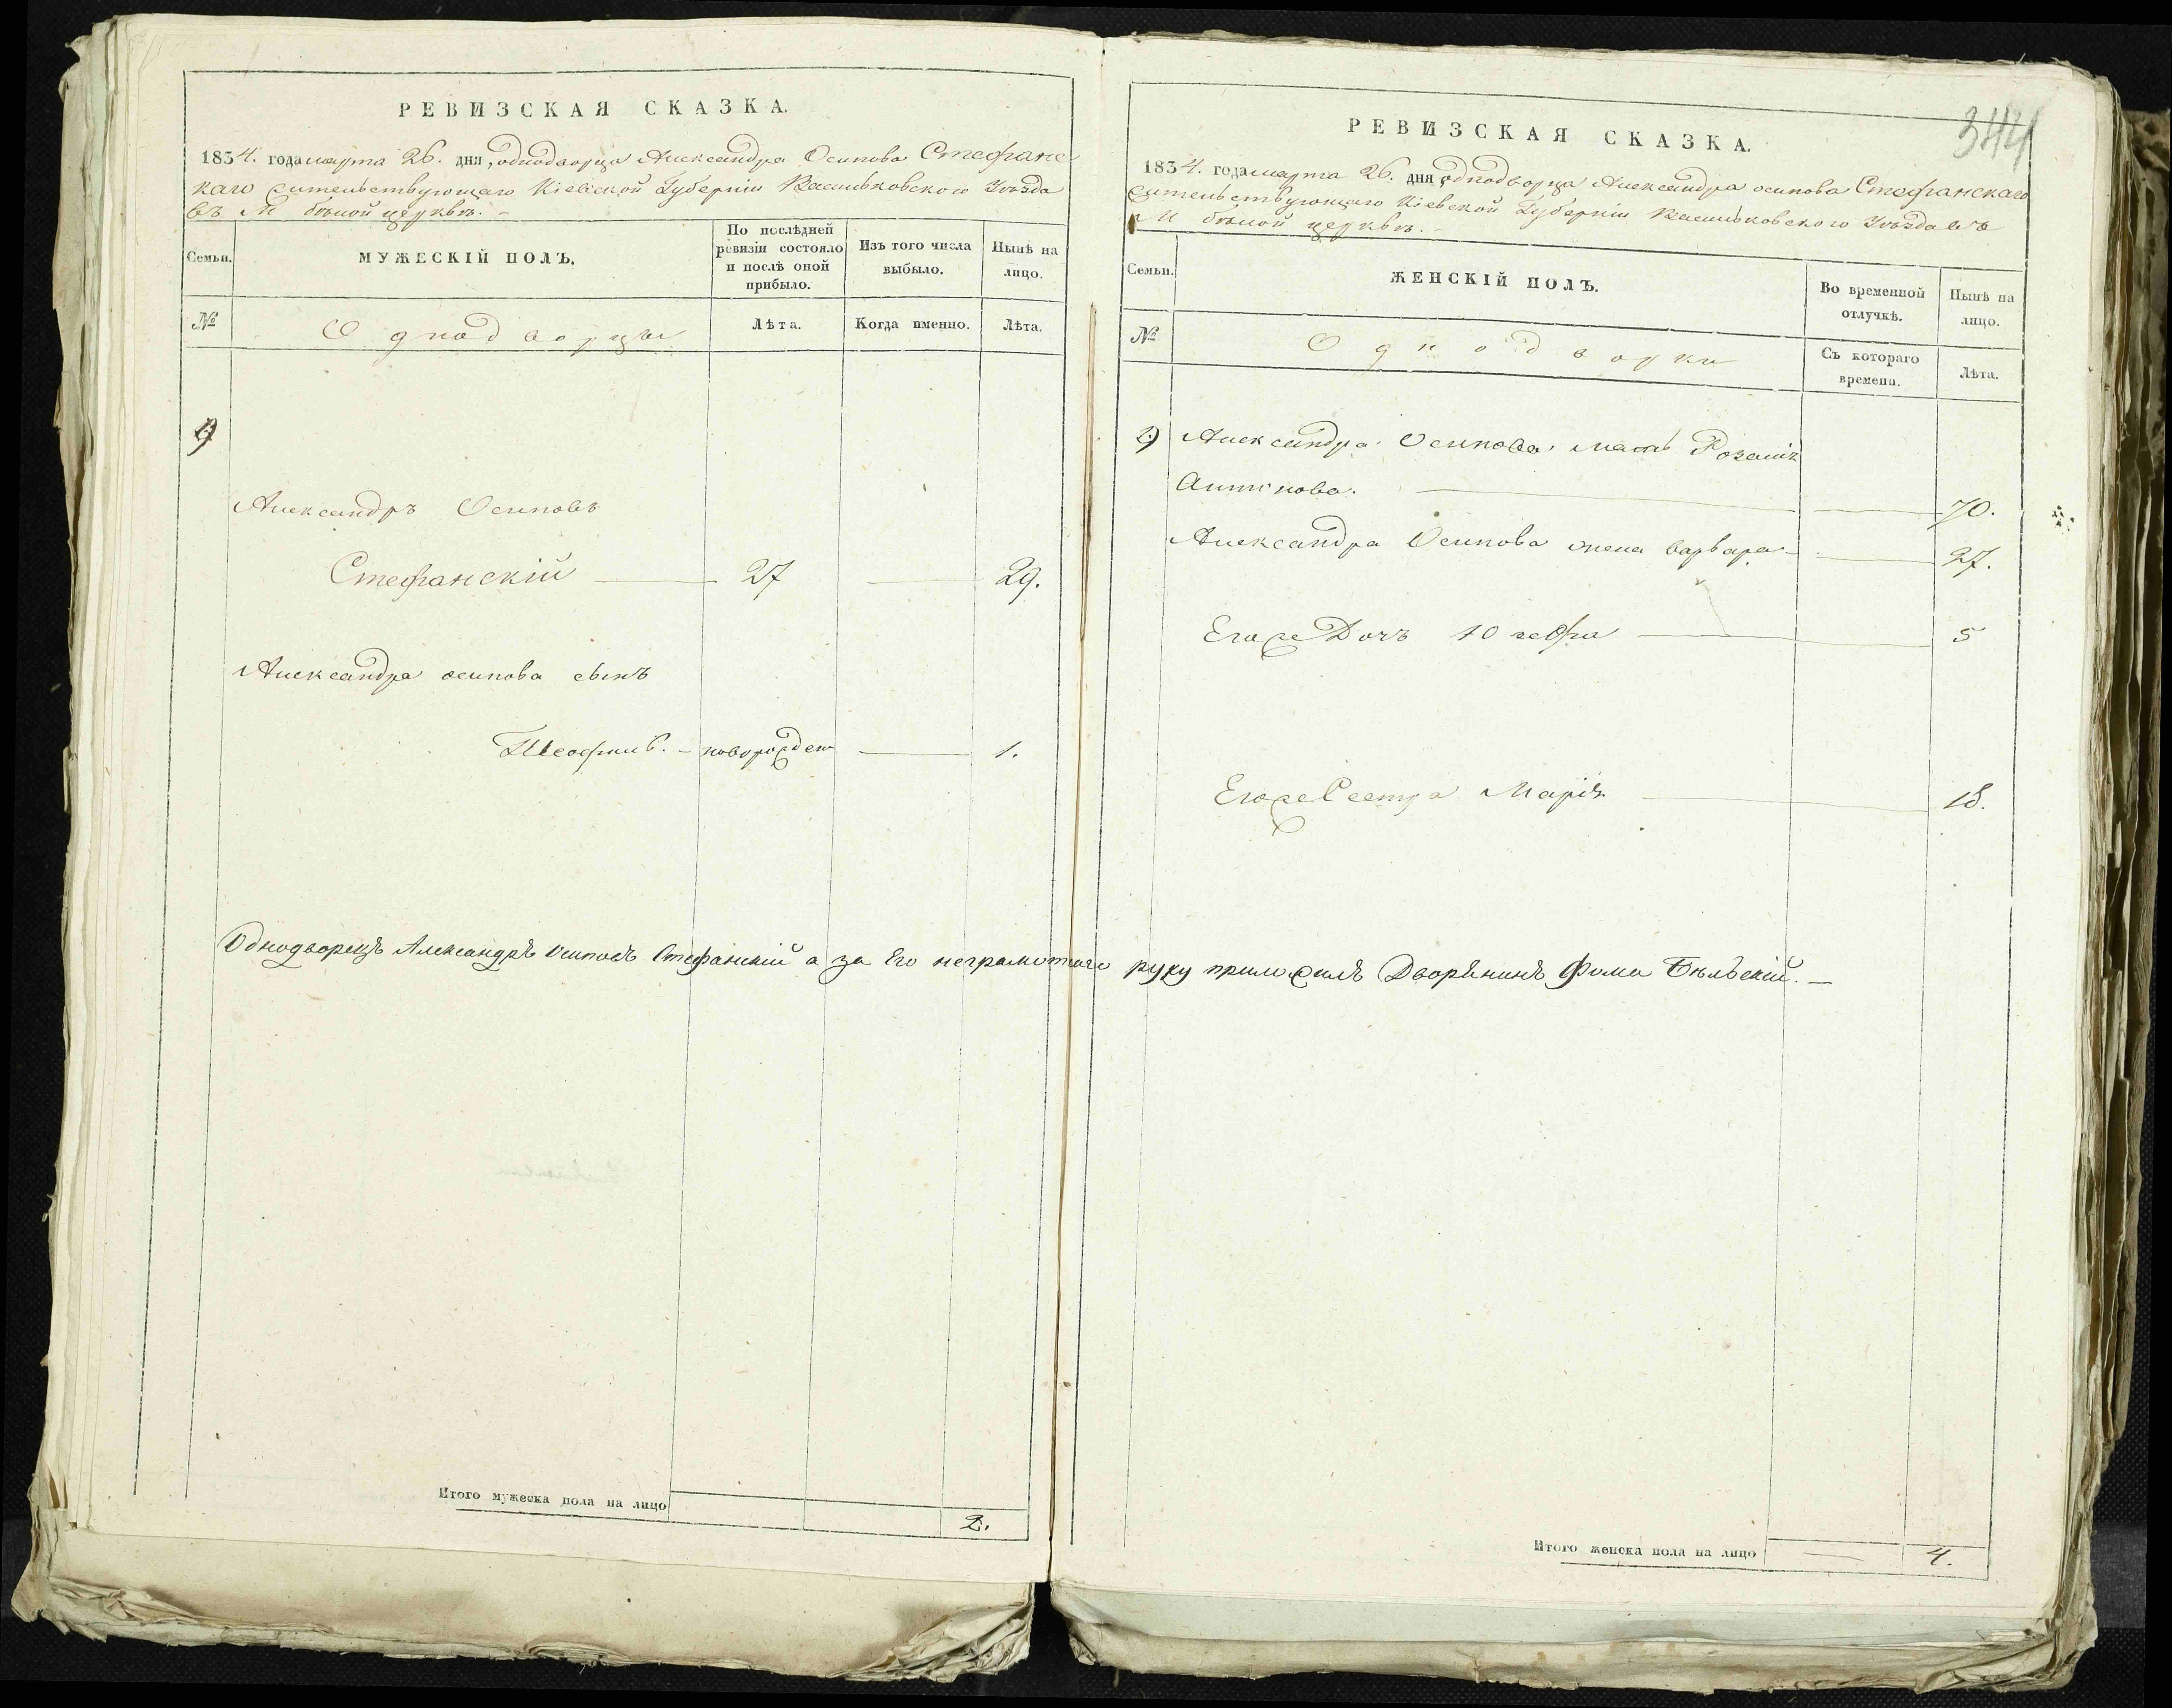 РЕВИЗСКАЯ СКАЗКА.
1834. года марта 26. дня, однодворца Александра Осипова Стефанс
каго жительствующаго Кіевской Губерніи Васильковского Уѣзда
въ М бѣлой церквѣ. -
Семьи.
МУЖЕСКІЙ ПОЛЪ.
По послѣдней
ревизіи состояло
и послѣ оной
прибыло.
Изъ того числа
выбыло.
Нынѣ на
лицо.
№
Однодворцы
Лѣта.
Когда именно.
Лѣта.
Александръ Осиповъ
Стефанскій 27 29.
Александра осипова сынъ
Теофил. - новорожден 1.
Однодворецъ Александръ Осиповъ Стефанскій а за Его неграмотного руку приложилъ Дворянинъ Фома Бѣльскій. -
Итого мужеска пола на лицо
2.
344
РЕВИЗСКАЯ СКАЗКА.
1834. года марта 26. дня однодворца Александра осипова Стефанскаго
жительствующаго Кіевской Губерніи Васильковского Уѣзда въ
М бѣлой церквѣ. -
Семьи.
ЖЕНСКІЙ ПОЛЪ.
Во временной
отлучкѣ.
Нынѣ на
лицо.
№
Однодворки
Съ котораго
времени.
Лѣта.
Александра Осипова мать Розалія
Антонова. 70.
Александра Осипова жена варвара 27.
Егоже Дочь Юзефа 5
Егоже Сестра Марія 18.
Итого женска пола на лицо
4.